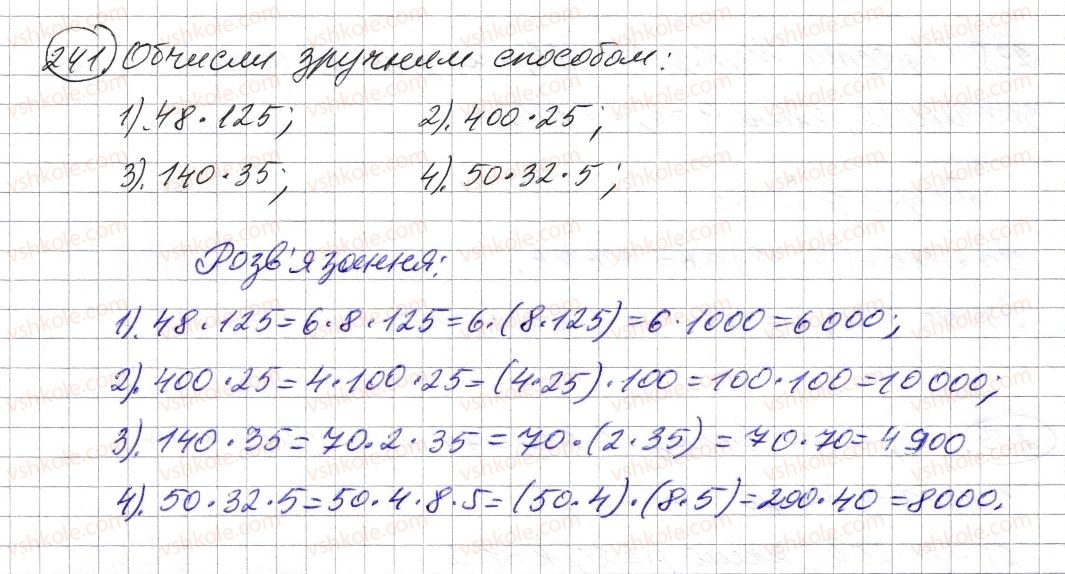 241. Обчисли зручним способом:
1). 48·125; 2). 400·25;
3). 140·35; 4). 50·32·5;
Розв'язання:
1). 48·125=6·8·125=6·(8·125)=6·1000=6000;
2). 400·25=4·100·25=(4·25)·100=100·100=10000;
3). 140·35=70·2·35=70·(2·35)=70·70=4900
4). 50·32·5=50·4·8·5=(50·4)·(8·5)=200·40=8000.
vshkole.com